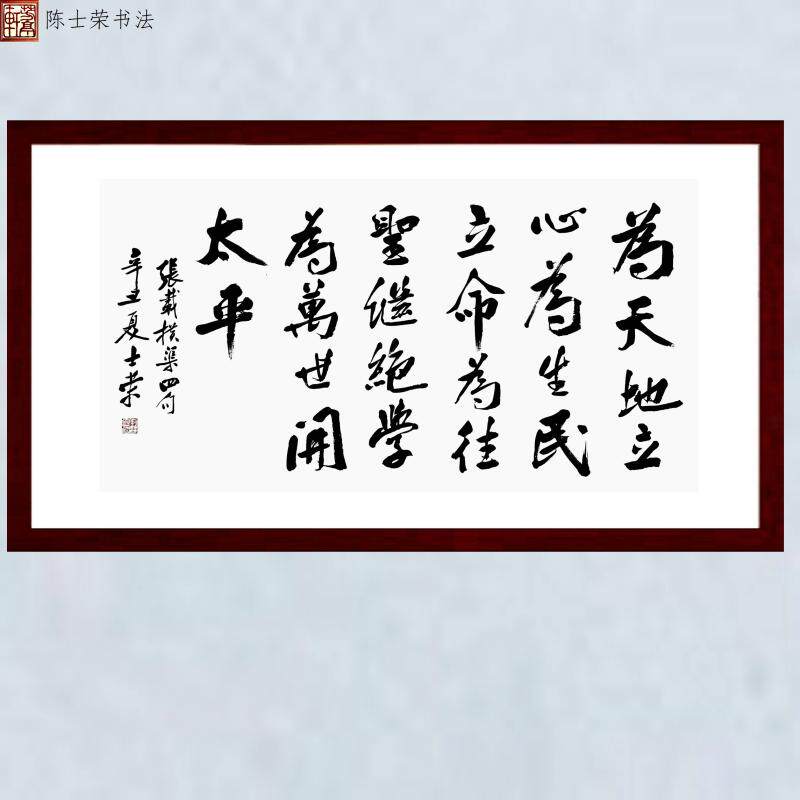 陈士荣书法
為天地立
心為生民
立命為往
聖继絶学
為萬世開
太平
張載横渠四句
辛丑夏士荣